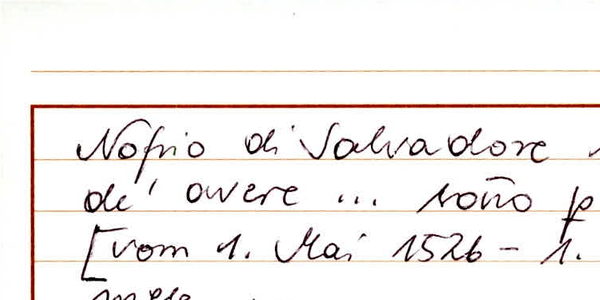 Nofrio di Salvadore
de' avere ... sono p
[vom 1. Mai 1526 - 1.